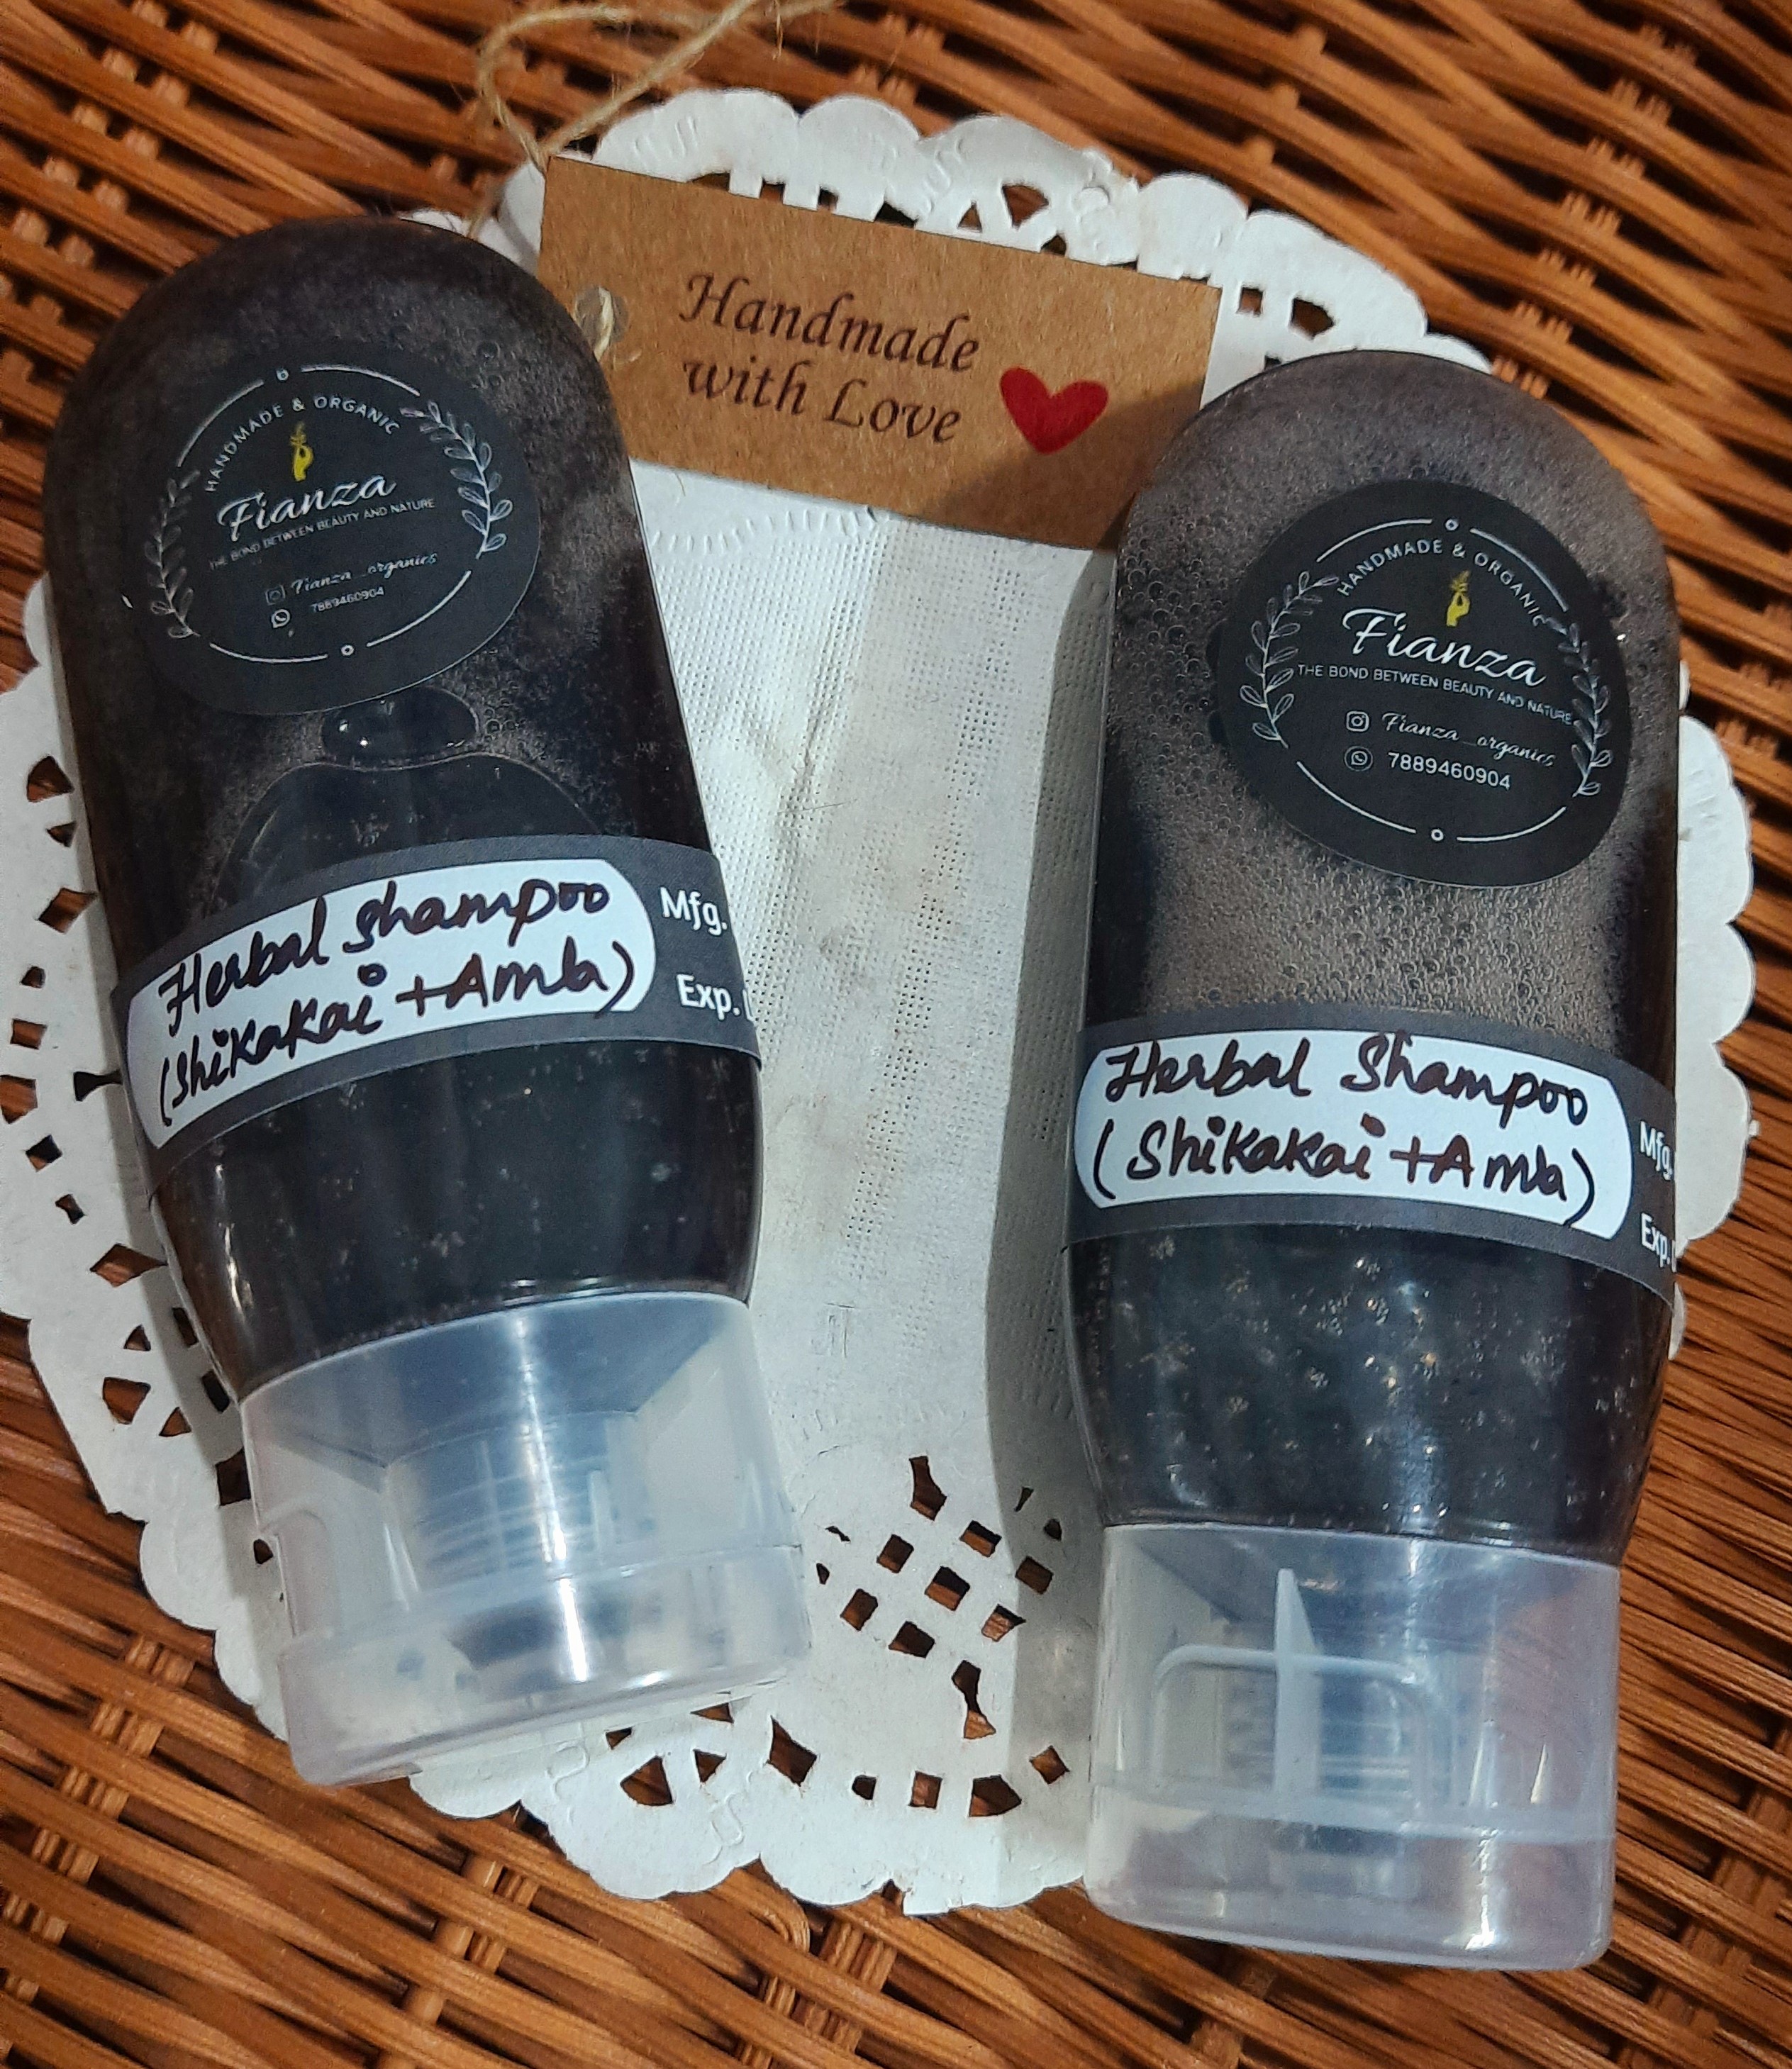 Handmade
with Love
HANDMADE & ORGANIC
Fianza
THE BOND BETWEEN BEAUTY AND NATURE
Fianza_organics
7889460904
Herbal Shampoo
(Shikakai + Amla)
Mfg.
Exp.
HANDMADE & ORGANIC
Fianza
THE BOND BETWEEN BEAUTY AND NATURE
Fianza_organics
7889460904
Herbal Shampoo
(Shikakai + Amla)
Mfg.
Exp.